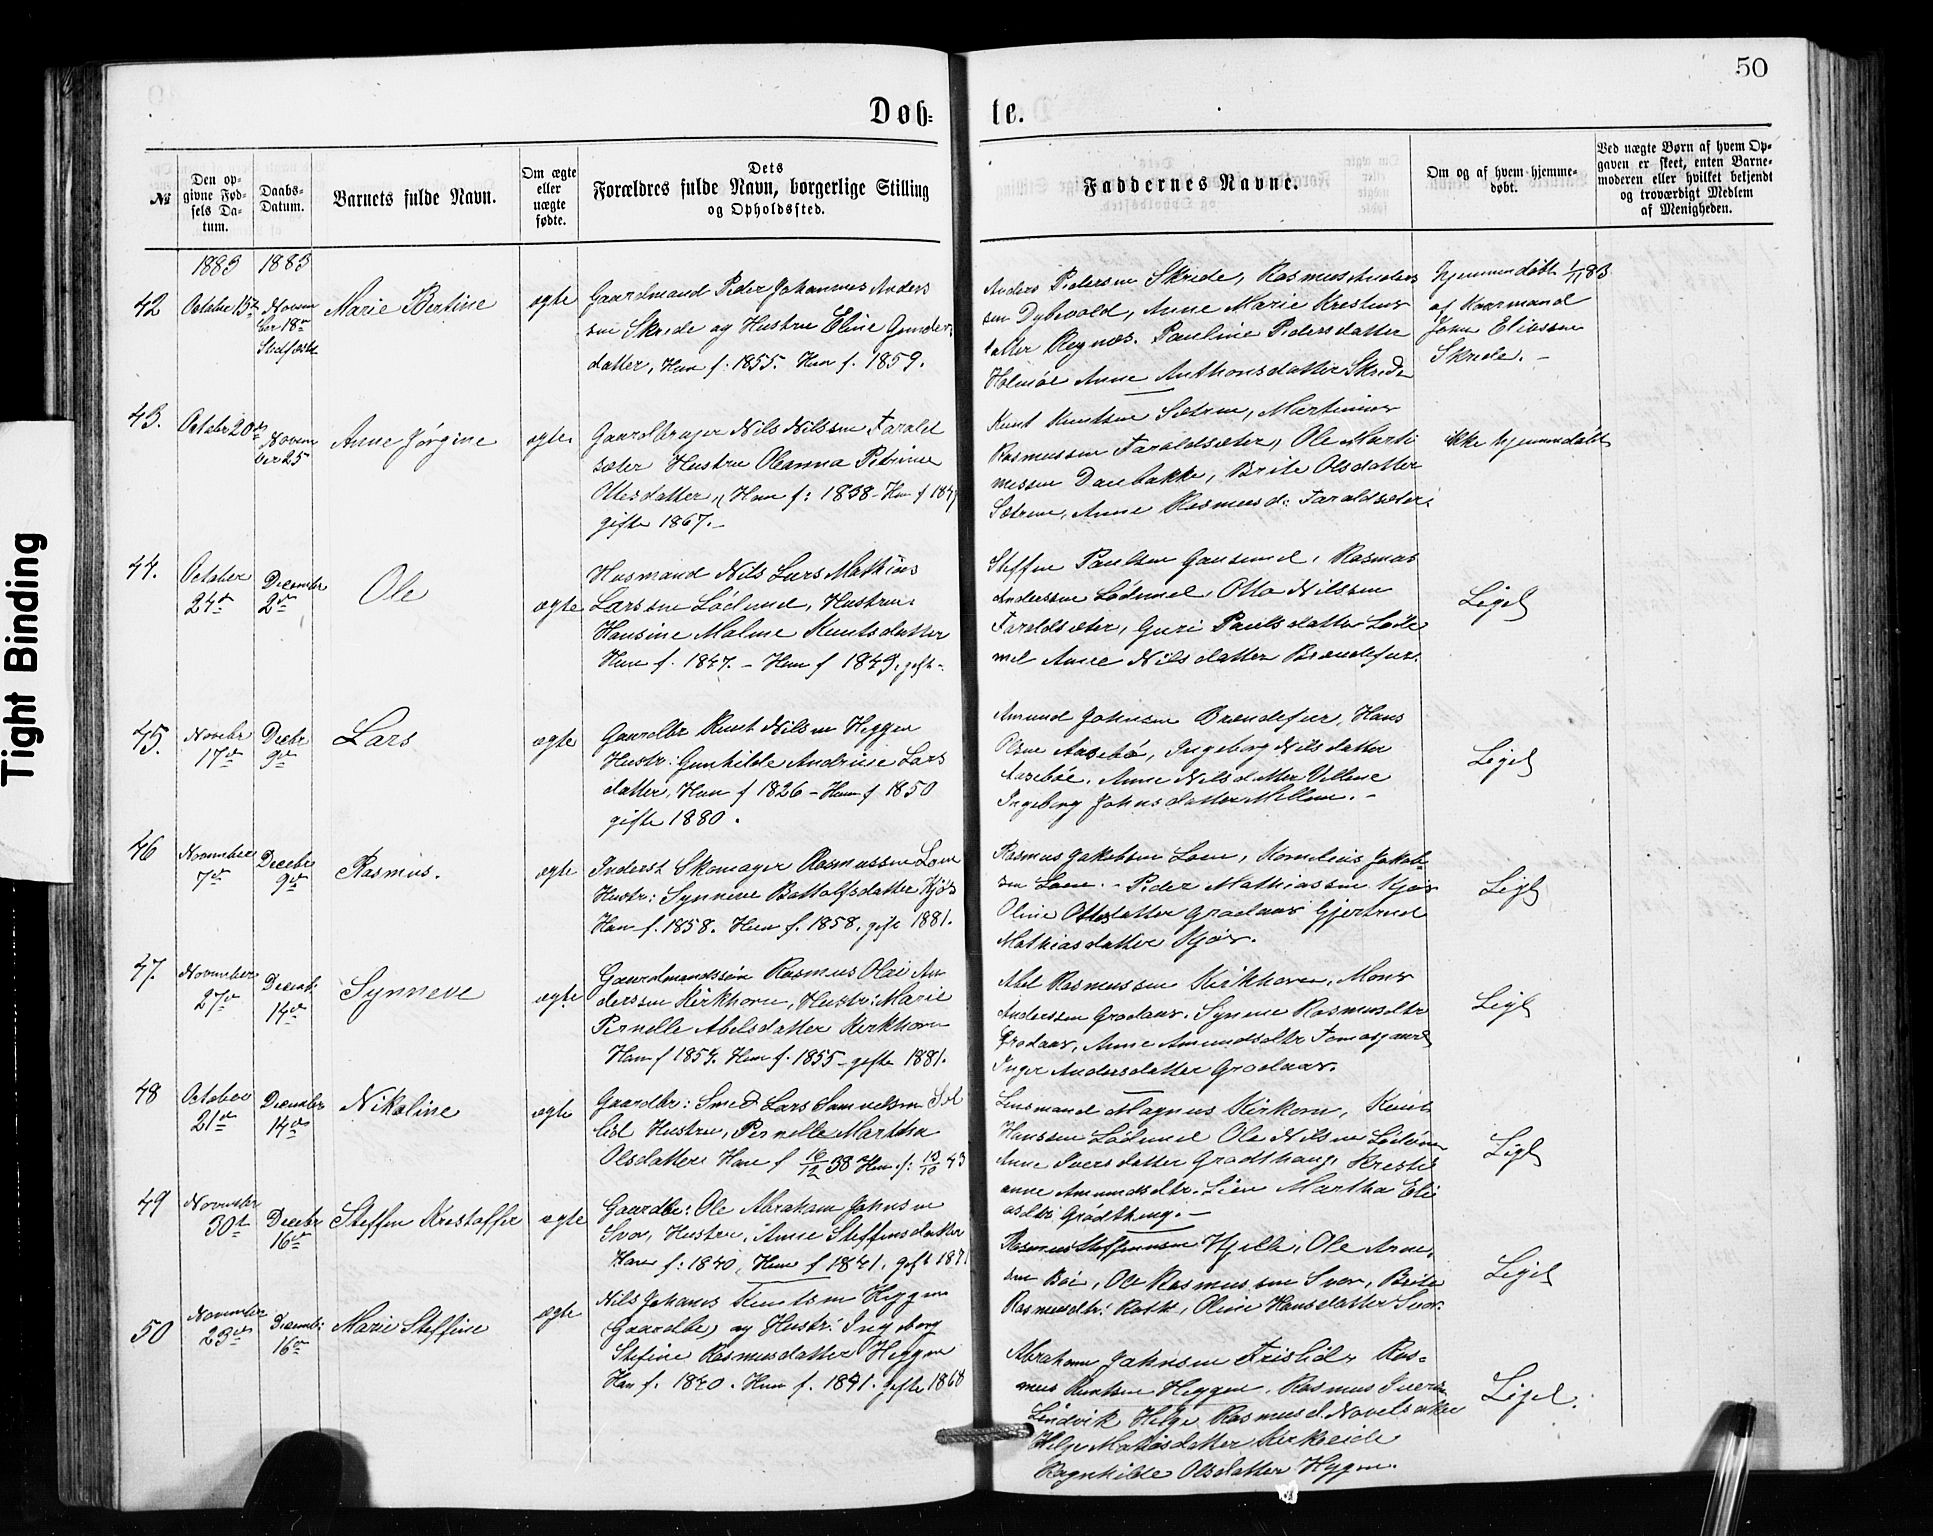 50
Døb-
te.
№
Den op-
givne Fød-
sels Da-
tum.
Daabs-
Datum.
Barnets fulde Navn.
Om ægte
eller
uægte
fødte.
Dets
Forældres fulde Navn, borgerlige Stilling
og Opholdssted.
Faddernes Navne.
Om og af hvem hjemme-
døbt.
Ved uægte Børn af hvem Op-
gaven er skeet, enten Barne-
moderen eller hvilket bekjendt
og troværdigt Medlem
af Menigheden.
1883
1883
42
October 15de
Novem
ber 18de
Marie Bertine
ægte
Gaardmand Peder Johannes Anders
sen Skrede og Hustru Eline Gunders
datter, Han f. 1855. Hun f. 1859.
Anders Pedersen Skrede, Rasmus Anders
sen Dybevold, Anne Marie Krestens
datter Reynæs. Pauline Pedersdatter
Holmøe Anne Anthonsdatter Skrede
hjemmedøbt 1/11 83
af Kaarmand
John Eliassen
Skrede. -
43.
October 20de
Novem
ber 25
Anne Jørgine
ægte
Gaardbruger Nils Nilssen Farald
sæter Hustru Oleanna Petrine
Ottesdatter, Han f: 1838 - Hun f
gifte 1867. -
Knut Knutsen Sætren, Martinus
Rasmussen Faraldsæter, Ole Marti
nussen Daubakke, Brite Olsdatter
Sætren, Anne Rasmusd: Faraldsæter
ikke hjemmedøbt
44.
October
24de
December
2de
Ole
ægte
Husmand Nils Lars Mathias
Larssen Lødemel, Hustru:
Hansine Malene Knutsdatter
Han f. 1847. - Hun f 1849, gift -
Steffen Paulsen Gausemel, Rasmus
Anderssen Lødemel, Otto Nilssen
Faraldsæter, Guri Paulsdatter Løde
mel Anne Nilsdatter Brændefur.
Ligel
45.
Novebr
17de
Decbr
9de
Lars
ægte
Gaardbr Knut Nilsen Heggen
Hustr: Gunhilde Andrine Lars
datter, Han f 1826 - Hun f 1850
gifte 1880.
Amund Johnsen Brændefur, Hans
Olsen Aasebø, Ingeborg Nilsdatter
Aasebøe, Anne Nilsdatter
Ingeborg Johnsdatter Mellem. -
Ligel
46
November
7de
Decebr
9de
Rasmus.
ægte
Inderst Skomager Rasmussen Loen
Hustr: Synneve Bottolfsdatter Kjøs
Han f. 1858. Hun f. 1858, gifte 1881.
Rasmus Jakobsen Loen, Kornelius Jakob-
sen Loen. - Peder Mathiassen Kjøs
Oline Ottesdatter Grodaas Gjertrud
Mathiasdatter Kjøs.
Ligl
47.
November
27de
Decemb:
14de
Synneve
ægte
Gaardmandssøn Rasmus Olai An-
derssen Kirkhorn, Hustr: Marie
Pernelle Abelsdatter Kirkhorn
Han f 1854. Hun f. 1855 - gifte 1881.
Abel Rasmussen Kirkhorn, Mons
Anderssen Grodaas. Synneve Rasmusdtr
Grodaas, Anne Amundsdtr Tomasgaard
Inger Andersdatter Grodaas.
Ligl
48
October
21de
December
14de
Nikoline
ægte
Gaardbr: Smed Lars Samuelsen
Hustru, Pernelle Martha
Olsdatter Han f 16/12 38 Hun f: 10/10 43
Lensmand Magnus Kirkorn, Knut
Hanssen Lødemel Ole Nilsen
Anne Iversdatter Grodthaug, Kresti
anne Amundsdtr. Lien Martha Eli
asdtr Grødthaug. -
Ligl
49
November
30te
Decebr
16de
Steffen Kristoffer
ægte
Gaardbr: Ole Abraham Johnsen
Svor, Hustru, Anne Steffensdatter
Han f: 1840, Hun f 1841. gift 1871
Rasmus Steffensen Hjelle, Ole Arne-
sen Bøe, Ole Rasmussen Svor, Brite
Rasmusdtr: Raftt, Oline Hansdatter Svor
Ligel
50
November
23de
Decemb:
16de
Marie Steffine
ægte
Nils Johanes Knutsen Heggen
(Gaardbr) og Hustr: Ingeborg
Stefine Rasmusdatter Heggen
Han f. 1840. Hun f. 1841. gifte 1868
Abraham Johnsen Frislid, Ras-
mus Knutsen Heggen, Rasmus Ivers
Lindvik Helge Rasmusd.
Helge Mathiasdatter Kirkeeide
Ragnhilde Olsdatter Heggen.
Ligel.
Tight Binding